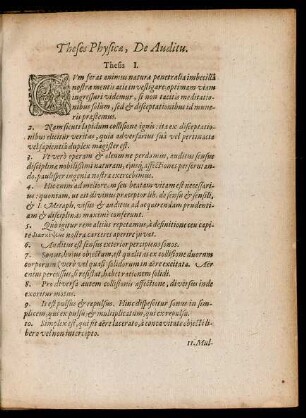 Theses Physicæ, De Auditu.
Thesis I.
CVm feras animus naturæ penetralia imbecilla
nostræ mentis acie investigare, optimam viam
ingressuri videmur, si non tacitis meditatio-
nibus solum, sed & disceptationibus id mune-
ris præstemus.
2. Nam sicuti lapidum collisione ignis: ita ex disceptatio-
nibus elicitur veritas, quia adversarius suâ vel pertinaciâ
vel sapientiâ duplex magister est.
3. Ut verò operam & oleum ne perdamus, auditus sensus
disciplinæ nobilissimi naturam, ejusq; affectiones, perscrutan-
do, paulisper ingenia nostra exercebimus.
4. Hic enim ad melius esse, seu beatam vitam est necessari-
us: quoniam, ut est divinum præceptoris lib. de sensu & sensili,
& 1. Metaph. visus & auditus ad acquirendam prudentiam
& disciplinas maximè conferunt.
5. Quo igitur rem altius repetamus, à definitione seu
nostra carceres aperire juvat.
6. Auditus est sensus exterior percipiens sonos.
7. Sonus, hujus objectum, est qualitas ex collisione duorum
corporum (verè vel quasi) solidorum in aëre excitata. Aër
enim percussus, si resistat, habet rationem solidi.
8. Pro diversa autem collisionis affectione, diversus inde
exoritur motus.
9. Is est pulsus & repulsus. Hinc dispescitur sonus in sim-
plicem, qui ex pulsu, & multiplicatum, qui ex repulsa.
10. Simplex est, qui fit aëre lacerato, à concavitate objecti li-
bero vel non intercepto.
11. Mul-